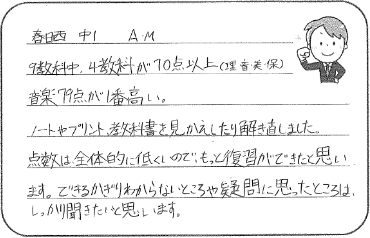 春日西 中1 A.M
9教科中、4教科が70点以上(理音美保)
音楽79点が1番高い。
ノートやプリント、教科書を見かえしたり解き直しました。
点数は全体的に低くいので、もっと復習ができたと思い
ます。できるかぎりわからないところや疑問に思ったところは、
しっかり聞きたいと思います。